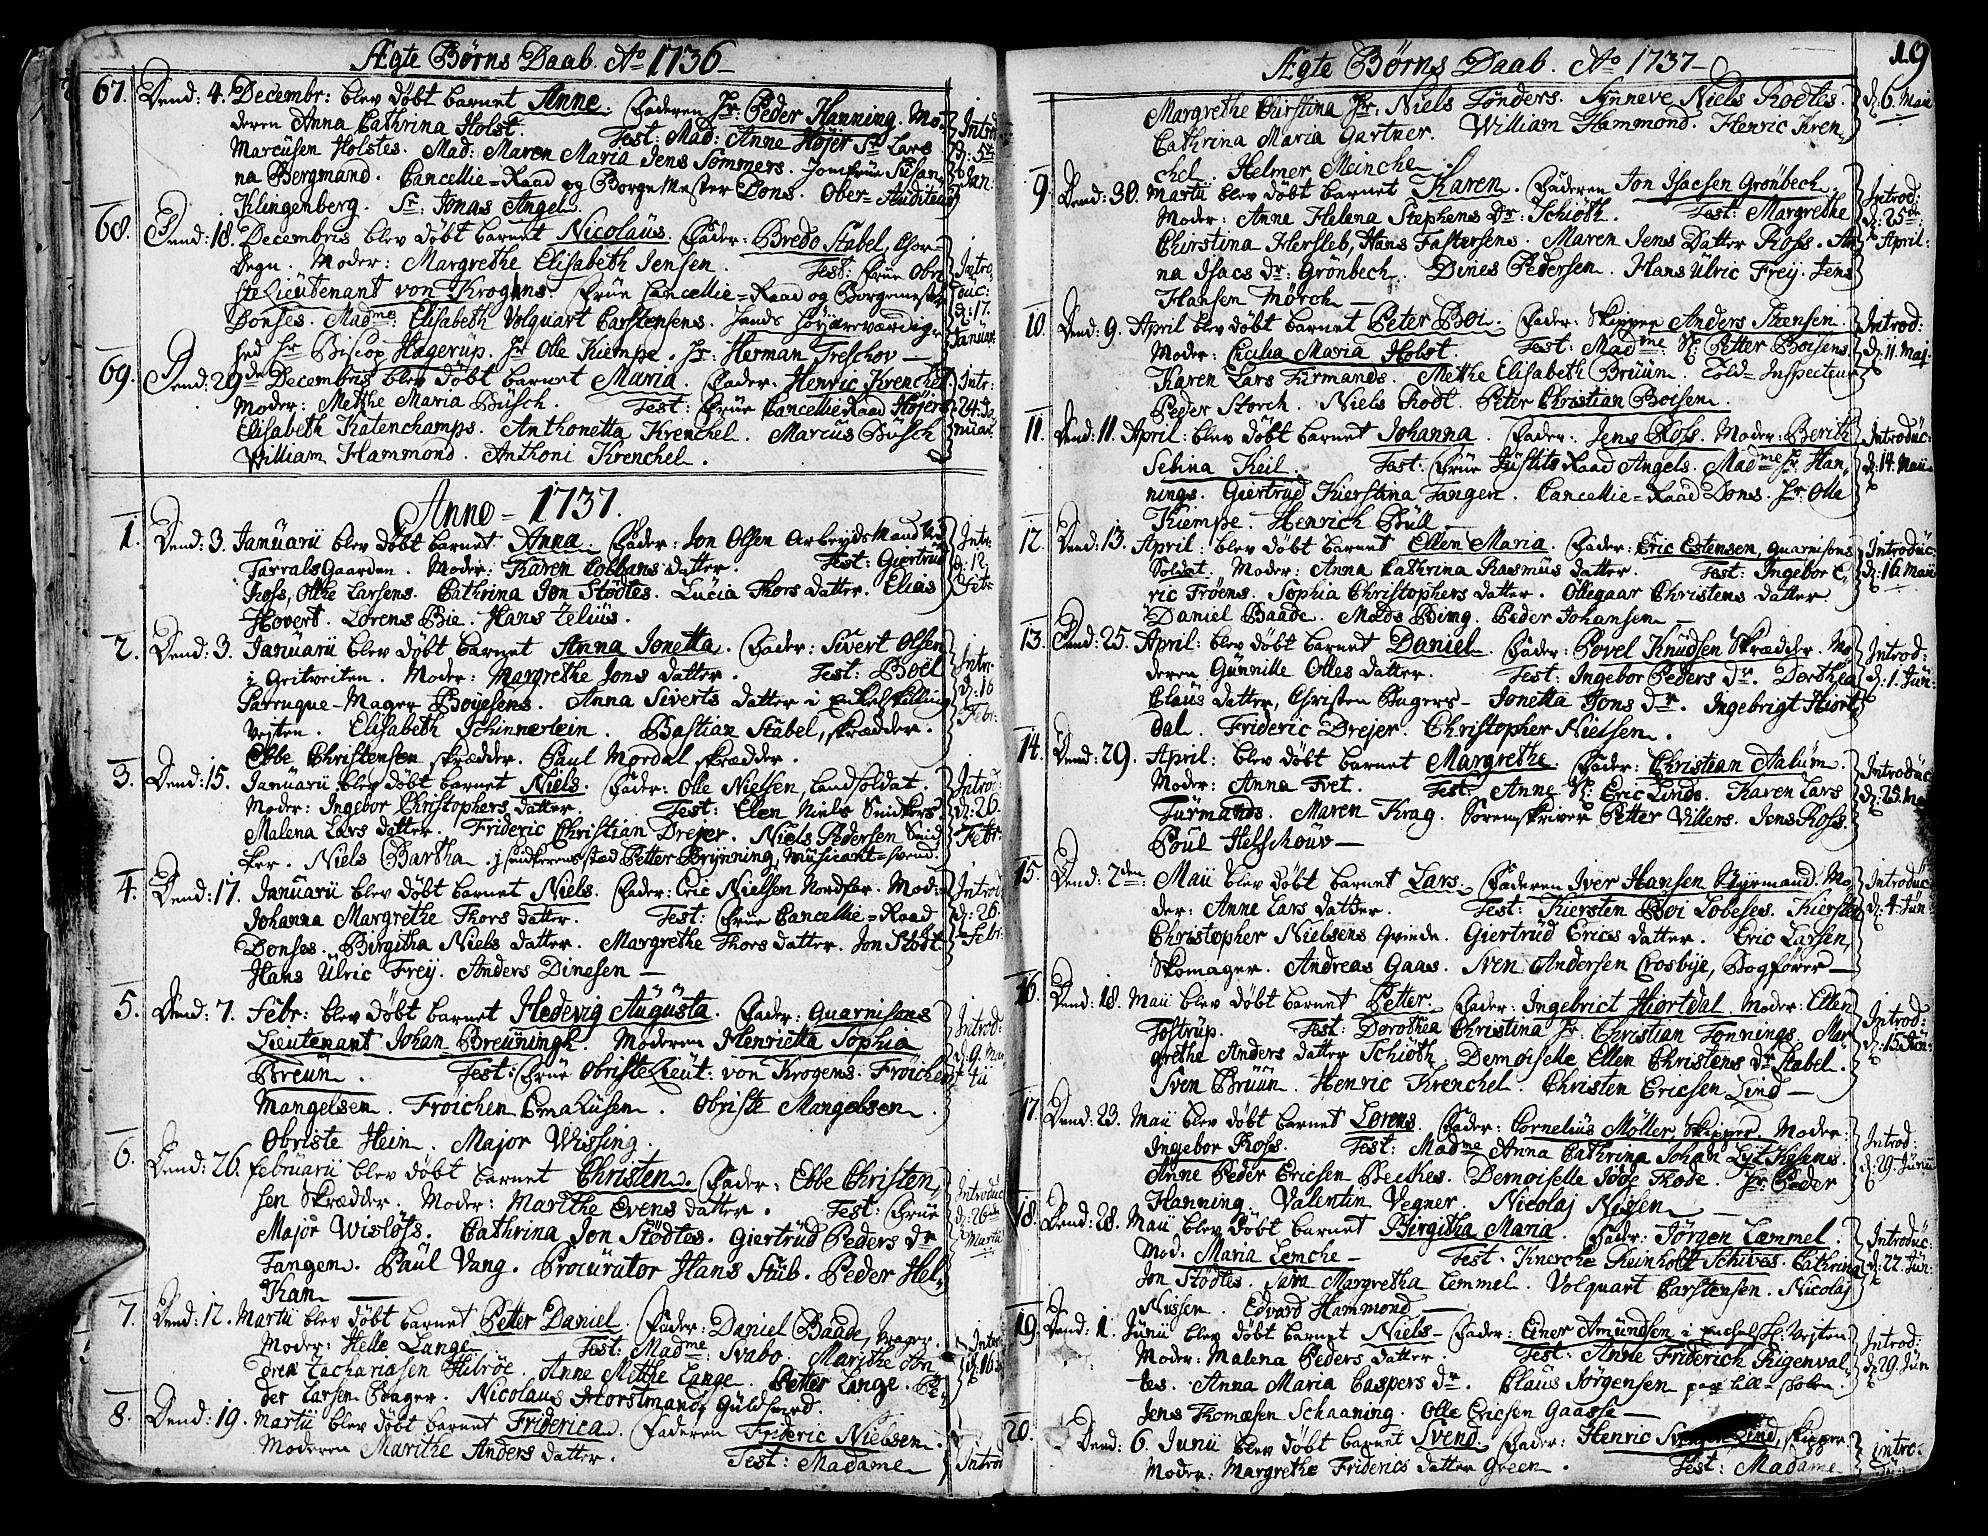 Ægte Børns Daab. Ao 1736
67. Dend: 4. Decembr: blev døbt barnet Anne. Faderen Hr Peder Hanning. Mo-
deren Anna Cathrina Holst. Test: Mad: Anne Højer Sr Lars
Marcusen Holstes. Mad: Maren Maria Jens Sommers. Jomfrue Susan-
na Bergmand. Cancellie-Raad og BorgeMester Dons. Ober-Auditeur
Klingenberg. Sr: Jonas Angel.
Introd
d: 5te
Jan:
68. Dend: 18. Decembris blev døbt barnet Nicolaus. Fader: Bredo Stabel, Chor-
Degn. Moder: Margrethe Elisabeth Jensen. Test: Frue Obri-
steLieutenant von Krogens. Frue Cancellie-Raad og Borgemester
Donses. Madme: Elisabeth Volquart Carstensens. Hands Høyærværdig-
hed Hr Biscop Hagerup. Hr Olle Kiempe. Hr: Herman Treschov
Intro
duc:
d: 17.
Januar.
69. Dend: 29de Decembris blev døbt barnet Maria. Fader: Henric Krenchel
Moder: Methe Maria Busch. Test: Frue CancellieRaad Højers
Elisabeth Katenchamps. Anthonetta Krenchel. Marcus Busch
William Hammond. Anthoni Krenchel.
Intr:
d: 24. Ja
nuar.
Anno 1737.
1. Dend: 3. Januarii blev døbt barnet Anna. Fader: Jon Olsen ArbeydsMand ved
TarvalsGaarden. Moder: Karen Colbans datter. Test: Giertrud
Ross, Olthe Larsens. Cathrina Jon Stødtes. Lucia Thors datter. Elias
Hovert. Lorens Bie. Hans Zelius.
Intr:
d: 12.
Febr:
2. Dend: 3. Januarii blev døbt barnet Anna Jonetta. Fader: Sivert Olsen
i Gritveiten. Moder: Margrethe Jons datter. Test: Boel
Parruque-Mager Boyesens. Anna Siverts datter i Enkelskilling
Vejten. Elisabeth Schinnerlein. Bastian Stabel, skrædder.
Ebbe Christensen skrædder. Paul Mordal skrædder.
Intr:
d: 16
Febr:
3. Dend: 15. Januarii blev døbt barnet Niels. Fader: Olle Nielsen, Landsoldat.
Moder: Ingebor Christophers datter. Test: Ellen Niels Snidkers
Malena Lars datter. Frideric Christian Dreyer. Niels Pedersen Snid-
ker. Niels Bartha. j hunderens stad Petter Brynning, Musicant-svend.
Introd:
d: 26.
Febr:
4. Dend: 17. Januarii blev døbt barnet Niels. Fader: Eric Nielsen Nordfar. Mod:
Johanna Margrethe Thors datter. Test: Frue Cancellie-Raad
Donses. Birgitha Niels datter. Margrethe Thors datter. Jon Stødt.
Hans Ulric Frey. Anders Dinesen
Introd
d: 26.
Febr:
5. Dend: 7. Febr: blev døbt barnet Hedevig Augusta. Fader: Guarnisons
Lieutenant Johan Breuningh. Moderen Henrietta Sophia
Breun. Test: Frue ObristeLieut: von Krogens. Frøichen
Mangelsen. Frøichen Emahusen. Obriste Mangelsen.
Obriste Hein. Major Wissing.
Introd:
d: 9. Mar
tii
6. Dend: 26. februarii blev døbt barnet Christen. Fader: Ebbe Christen,
sen Skrædder. Moder: Marithe Evens datter. Test: Frue
Major Wisløfs. Cathrina Jon Stødtes. Giertrud Peders dr
Tangen. Paul Vang. Procurator Hans Stub. Peder Hel-
kan
Introduc
d: 26de
Martii
7. Dend: 12. Martii blev døbt barnet Petter Daniel. Fader: Daniel Baade, Vrager.
Moder: Helle Lange. Test: Madme: Svabo. Marithe An-
drea Zachariasen Hitrøe. Anne Methe Lange. Petter Lange. Pe-
der Larsen Bager. Nicolaus Horstmand, Guldsmed.
Intr:
d: 16
8. Dend: 19. Martii blev døbt barnet Friderica. Faderen Frideric Nielsen.
Moderen Marithe Anders datter. Test: Madame
Introd
Ægte Børns Daab. Ao 1737
19
Margrethe Chirstina Hr: Niels Tønders. Synneve Niels Rodtes.
Cathrina Maria Gartner. William Hammond. Henric Kren,
chel. Helmer Meinche.
d: 6. Maii
9. Dend: 30. Martii blev døbt barnet Karen. Faderen Jon Isacsen Grønbech.
Moder: Anne Helena Stephens Dr: Schiøth. Test: Margrethe
Chirstina Hersleb, Hans Fastersens. Maren Jens Datter Ross. An
na Isacs dr: Grønbech. Dines Pedersen. Hans Ulric Frey. Jens
Hansen Mørch
Introd:
d: 25de
April:
10. Dend: 9. April blev døbt barnet Peter Boi. Fader: Skipper Anders Stensen.
Moder: Cecilia Maria Holst. Test: Madme Sl: Petter Boisens
Karen Lars Furmands. Methe Elisabeth Bruun. Told-Inspecteur
Peder Storch. Niels Rodt. Peter Christian Boisen.
Introd:
d: 11. Maj.
11. Dend: 11. April: blev døbt barnet Johanna. Fader: Jens Ross. Moder: Berith
Sebina Keil. Test: Frue Justits Raad Angels. Madme Hr: Han,
nings. Giertrud Kierstina Tangen. Cancellie-Raad Dons. Hr: Olle
Kiempe. Henrich Bull
Introduc:
d: 14. Maii
12. Dend: 13. April: blev døbt barnet Ellen Maria. Fader: Eric Estensen, Guarnisons
Soldat. Moder: Anna Cathrina Rasmus datter. Test: Ingebor E,
ric Trøens. Sophia Christophers datter. Ollegaar Christens datter
Daniel Baade. Mads Bing. Peder Johansen
Introduc:
d: 16. Maii
13. Dend: 25. April: blev døbt barnet Daniel. Fader: Povel Knudsen Skrædder. Mo
deren Gunnille Olles datter. Test: Ingebor Peders dr. Dorthea
Claus datter, Christen Bugers. Jonetta Jons dr. Ingebrigt Hiort,
dal. Frideric Drejer. Christopher Nielsen.
Introd:
d: 1. Jun:
14. Dend: 29. April: blev døbt barnet Margrethe. Fader: Christian Aalum.
Moder: Anna Tvet. Test: Anne Sl: Eric Linds. Karen Lars
Furmands. Maren Krag. Sorenskriver Petter Villers. Jens Ross.
Poul Helschouv
Introduc
d: 25. Ma
15. Dend: 2den: Maii blev døbt barnet Lars. Faderen Iver Hansen Byemand. Mo
der: Anne Lars datter. Test: Kiersten Boi Lobeses. Kiersten
Christopher Nielsens Qvinde. Giertrud Erics datter. Eric Larsen,
Skomager. Andreas Gaas. Sven Andersen Crosbye, Bogfører
Introduc
d: 4. Jun
16. Dend: 18. Maii blev døbt barnet Petter. Fader: Ingebrict Hiortdal. Moder: Ellen
Tostrup. Test: Dorothea Christina Hr: Christian Tonnings. Mar
grethe Anders datter Schiøth. Demoiselle Ellen Christens dr Stabel.
Sven Bruun. Henric Krenchel. Christen Ericsen Lind
Introd:
d: 15. Jun:
17. Dend: 23. Maii blev døbt barnet Lorens. Fader: Cornelius Møller, Skipper. Moder:
Ingebor Ross. Test: Madme Anna Cathrina Johan Lyt Kysens.
Anne Peder Ericsen Beches. Demoiselle Jøde Thode. Hr: Peder
Hanning. Valentin Vegner. Nicolaj Nissen
Introd:
d: 29. Junii
18. Dend: 28. Maii blev døbt barnet Birgitha Maria. Fader: Jørgen Lemmel.
Mod: Maria Lemche. Test: Knerche Reinholt Schives. Cathrina
Jon Stødtes. Sara Margretha Lemmel. Volquart Carstensen. Nicolaj
Nissen. Edvard Hammond
Introduc:
d: 22. Jun:
19. Dend: 1. Junii blev døbt barnet Niels. Fader: Einer Amundsen i Enchelsk: Vejten
Moder: Malena Peders datter. Test: Anne Friderich Rigenval
tes. Anna Maria Caspers dr. Claus Jørgensen
Jens Thomæsen Schaaning. Olle Ericsen Gaasse
Introd:
d: 29. Jun
20. Dend: 6. Junii blev døbt barnet Svend. Fader: Henric Svensen Lind, skipper
Moder: Margrethe Friderics datter Green. Test: Madame
intro: